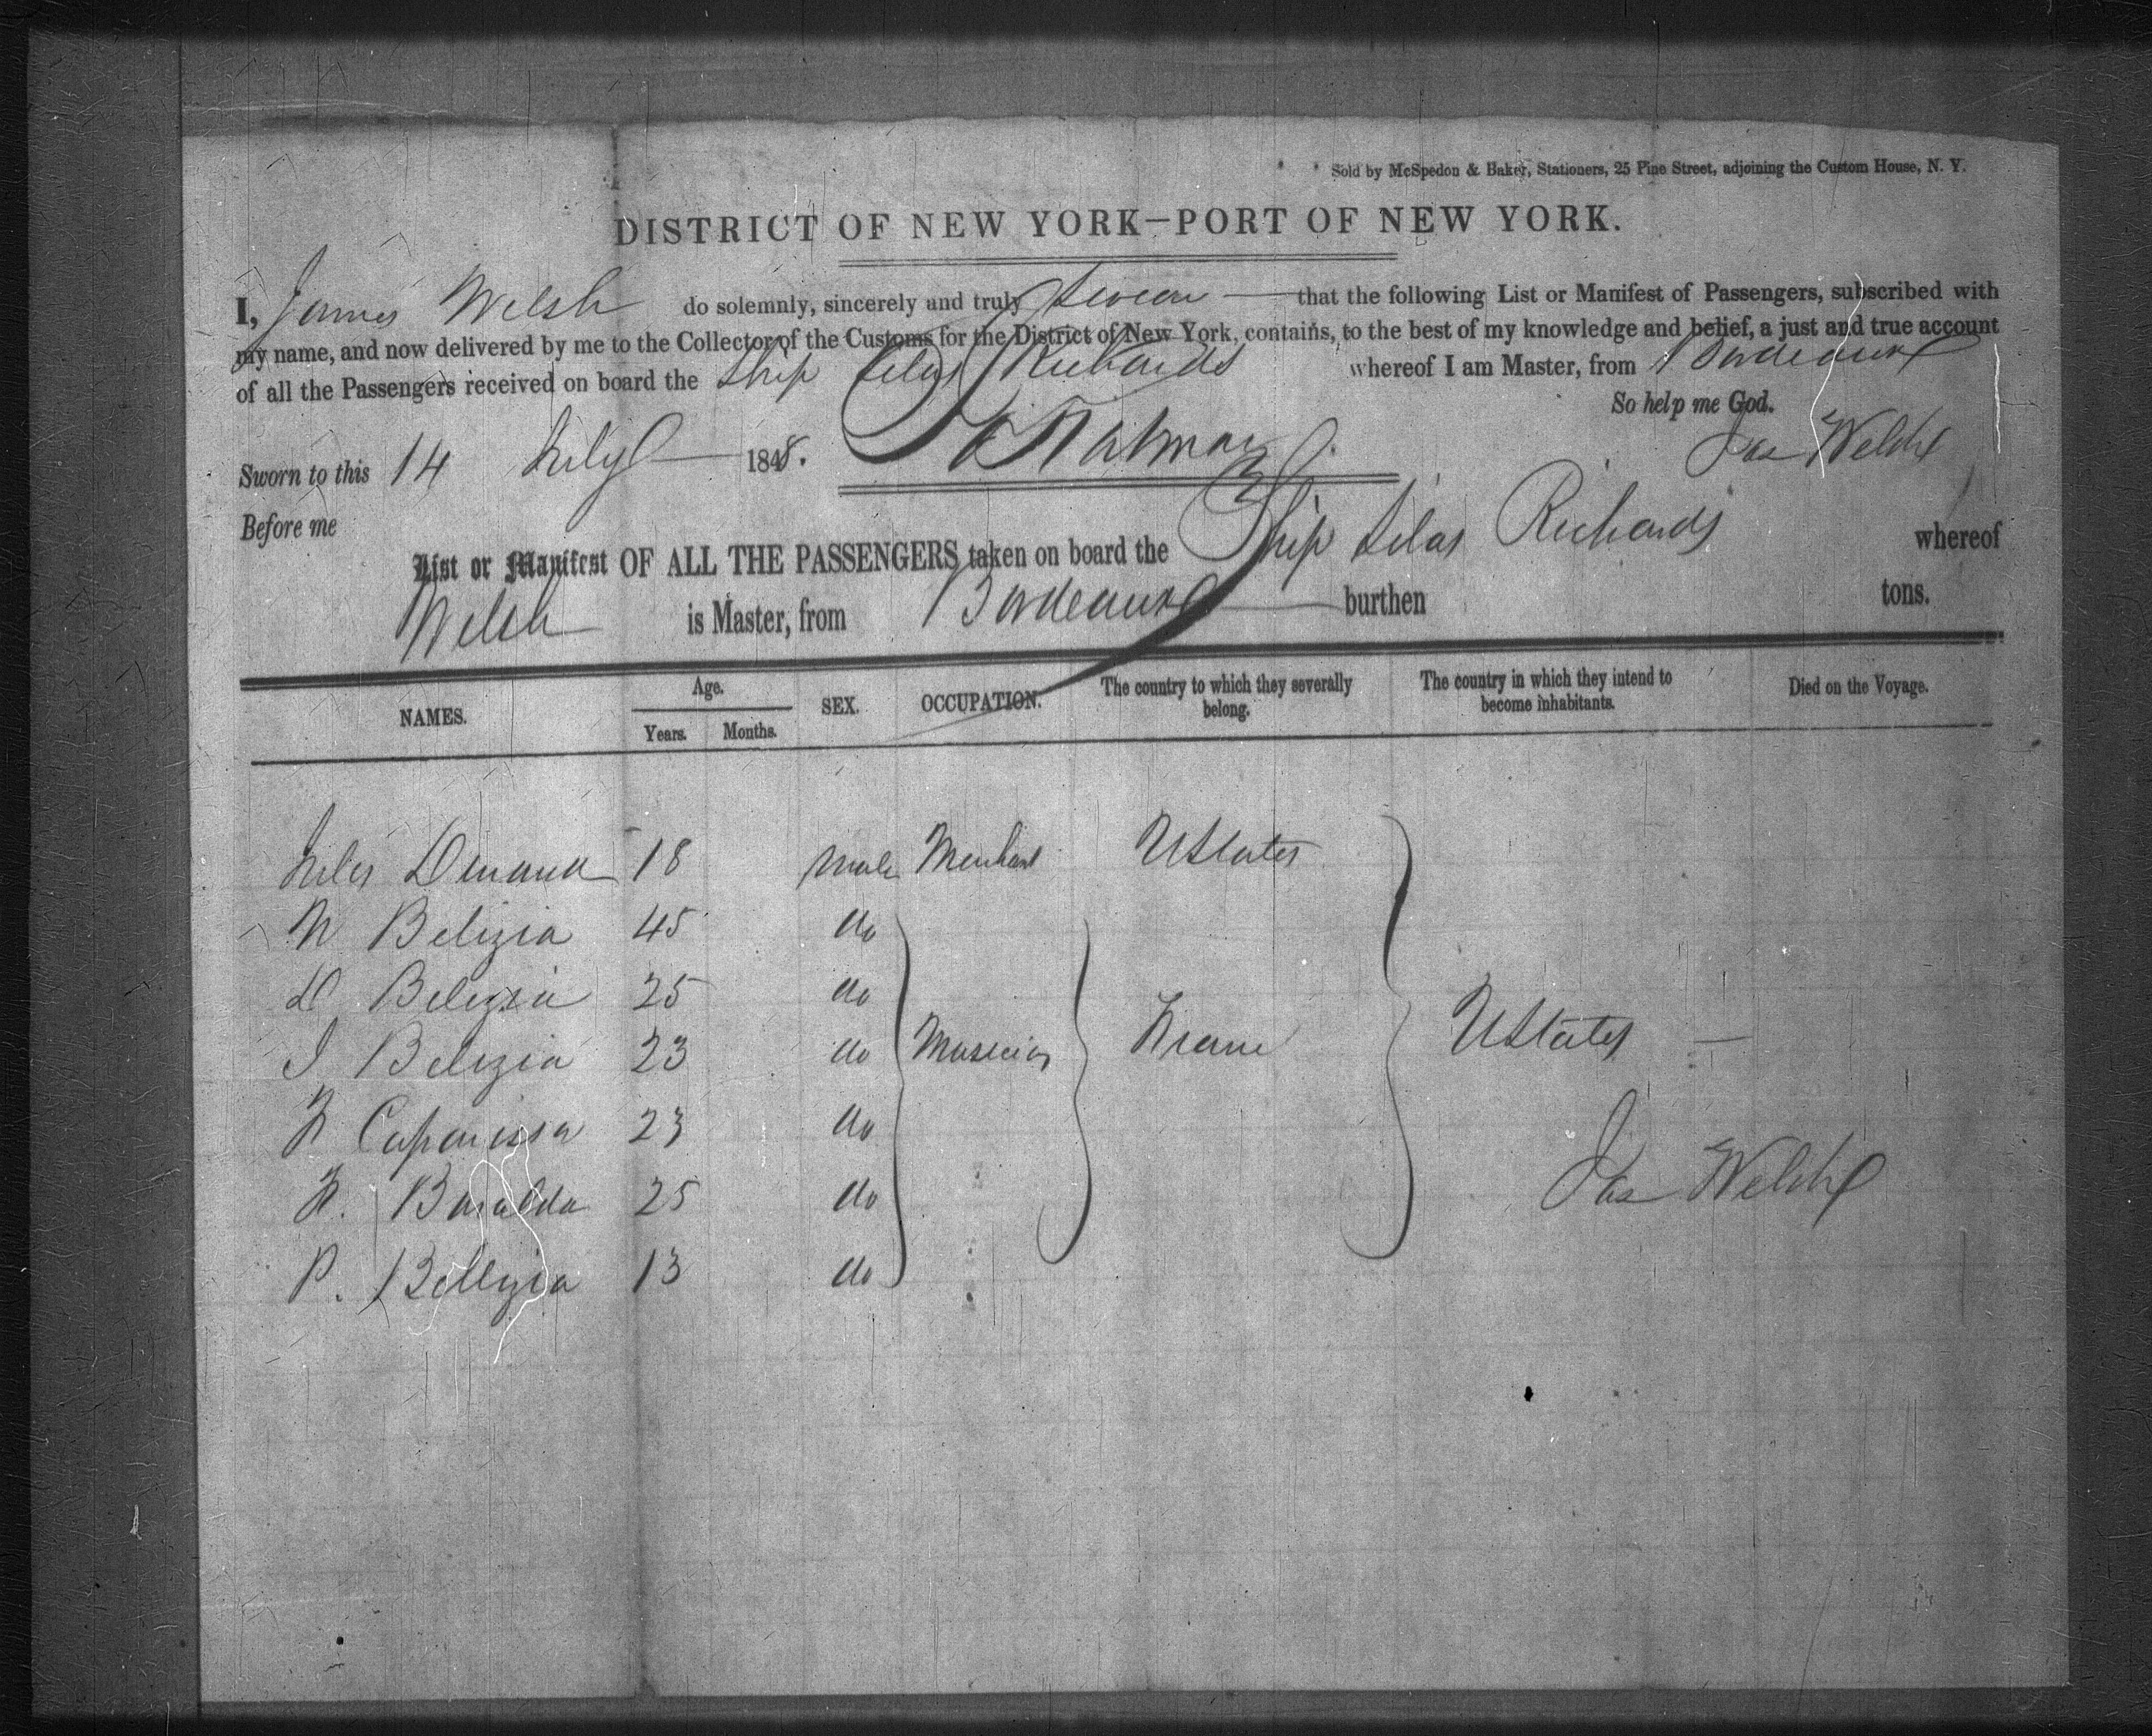 Sold by McSpedon & Baker, Stationers, 25 Pine Street, adjoining the Custom House, N. Y.
DISTRICT OF NEW YORK—PORT OF NEW YORK.
I, James Welsh do solemnly, sincerely and truly swear — that the following List or Manifest of Passengers, subscribed with
my name, and now delivered by me to the Collector of the Customs for the District of New York, contains, to the best of my knowledge and belief, a just and true account
of all the Passengers received on board the Ship Silas Richards whereof I am Master, from Bordeaux
So help me God.
Sworn to this 14 July 1848. Jas Welsh
Before me
List or Manifest OF ALL THE PASSENGERS taken on board the Ship Silas Richards whereof
Welsh is Master, from Bordeaux burthen tons.
NAMES. Age. Years. Months. SEX. OCCUPATION. The country to which they severally belong. The country in which they intend to become inhabitants. Died on the Voyage.
Jules 18 Male Merchant UStates
N Belizia 45 do
D Belizia 25 do
J Belizia 23 do Musician France UStates —
F 23 do
F. 25 do Jas Welsh
P. Bellizia 13 do